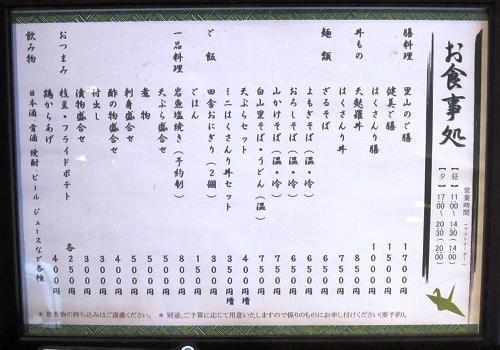 お食事処
営業時間（ラストオーダー）
【昼】11:00～14:30（14:00）
【夕】17:00～20:30（20:00）
膳料理
里山のご膳 1700円
健美ご膳 1500円
はくさんり膳 1000円
丼もの
天麩羅丼 850円
はくさんり丼 700円
麺類
ざるそば 600円
よもぎそば（温・冷） 650円
おろしそば（温・冷） 650円
山かけそば（温・冷） 750円
白山里そば・うどん（温） 750円
天ぷらセット 400円増
ミニはくさんり丼セット 350円増
ご飯
田舎おにぎり（2個） 300円
ごはん 150円
一品料理
岩魚塩焼き（予約制） 800円
天ぷら盛合せ 500円
煮物 500円
刺身盛合せ 500円
酢の物盛合せ 400円
付出し
漬物盛合せ
おつまみ
枝豆・フライドポテト 各250円
鶏からあげ 400円
飲み物
日本酒・青酒・焼酎・ビール・ジュースなど各種
＊飲食物の持ち込みはご遠慮ください。 ＊別途、ご予算に応じて用意いたしますので係りのものにお申し付けください(要予約)。